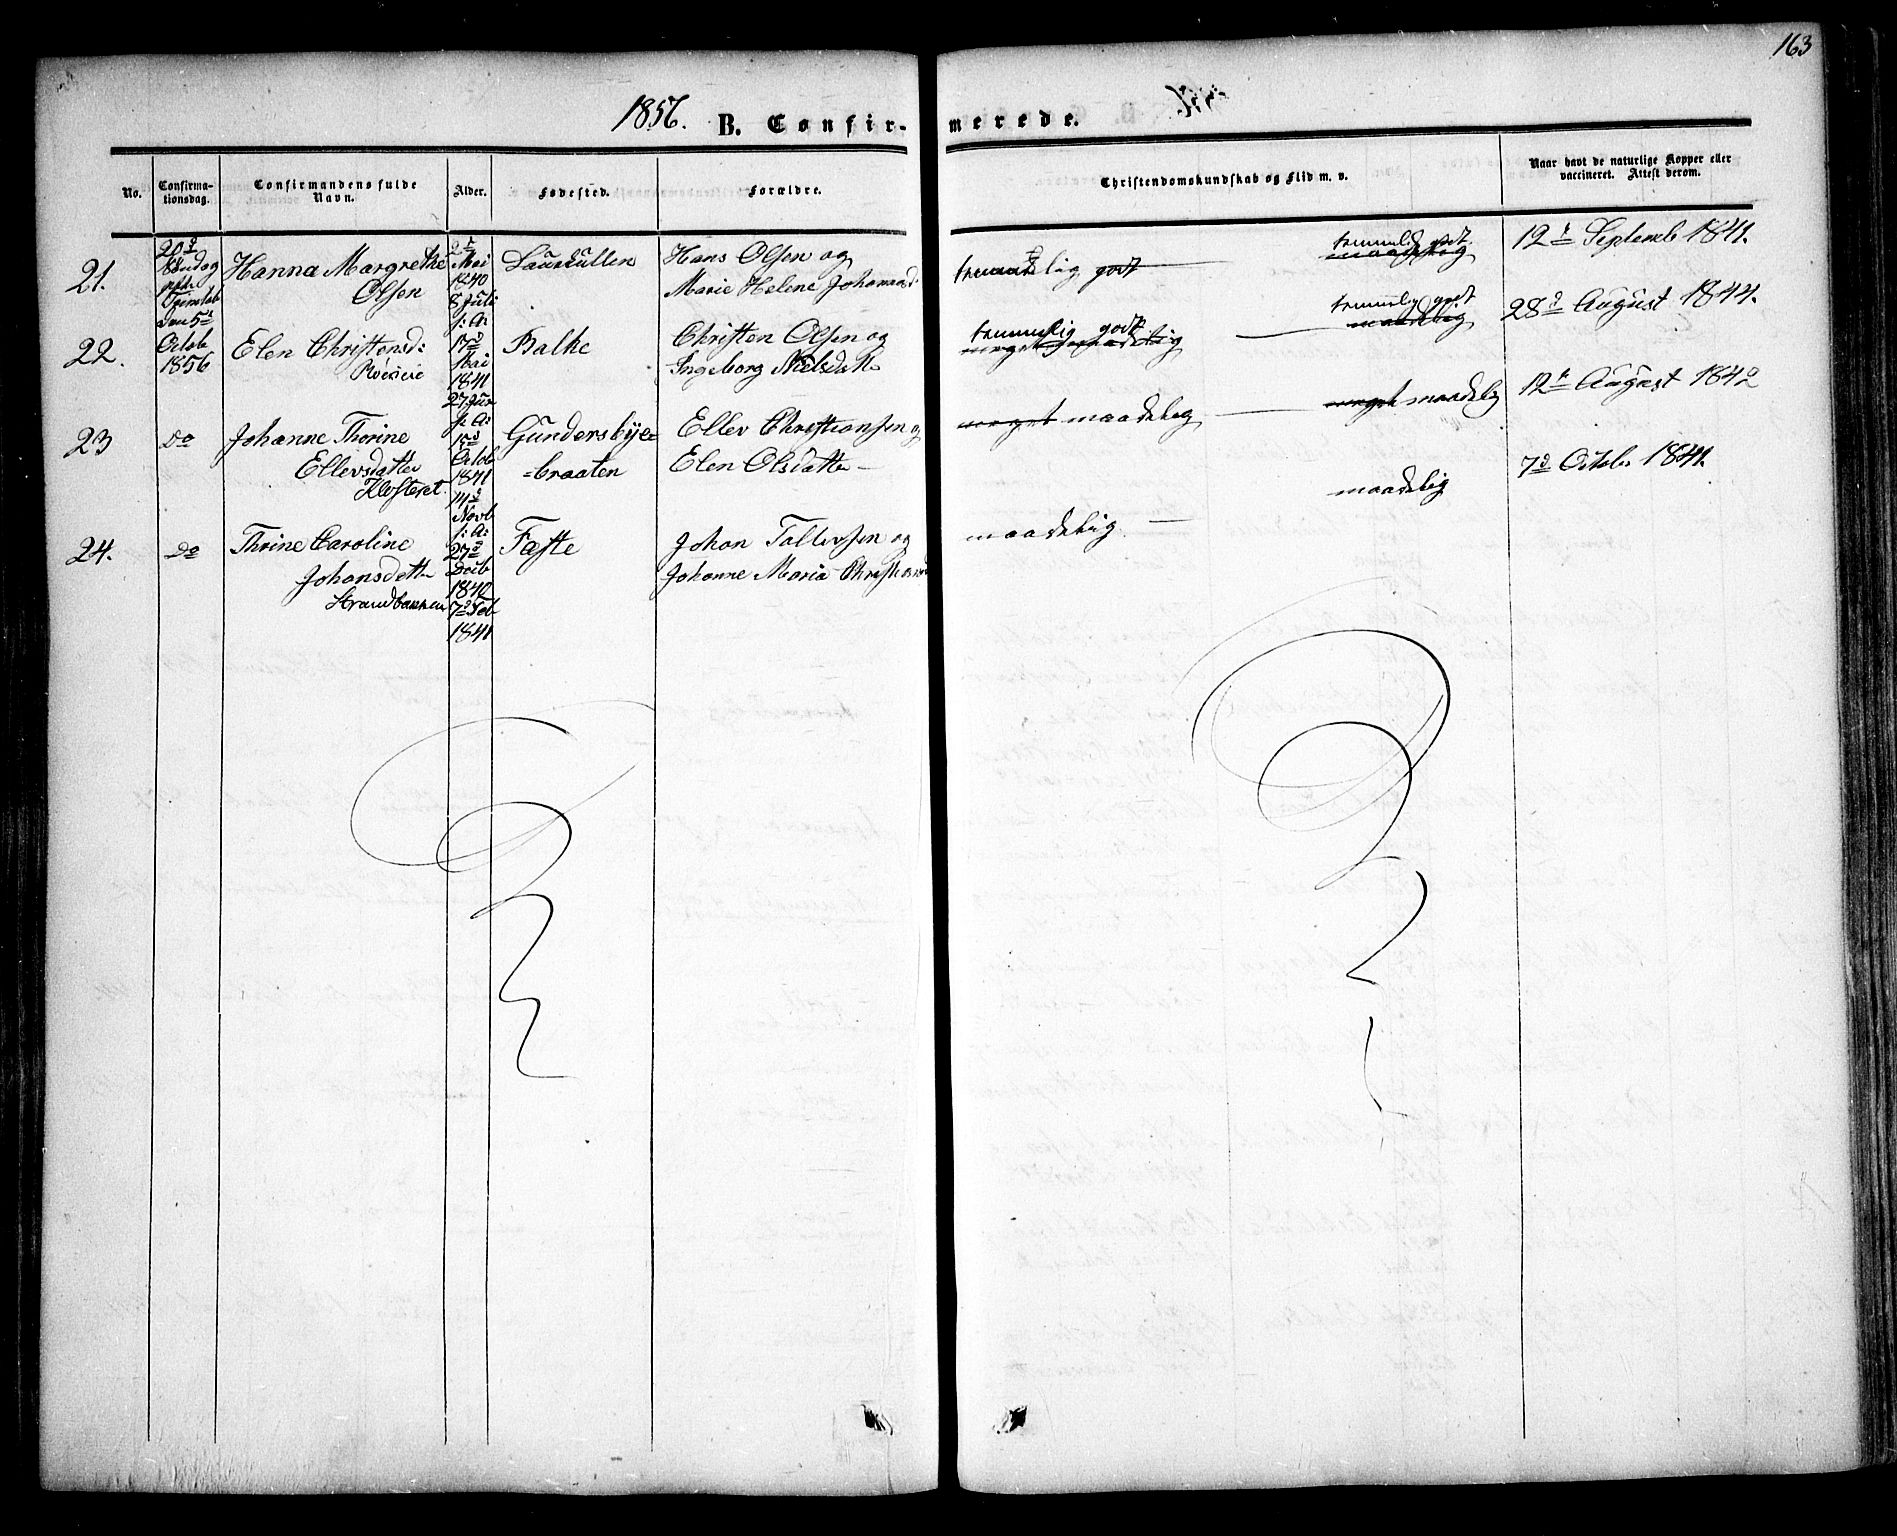 163
1856. B. Confir- merede.
No. Confirma-tionsdag. Confirmandens fulde Navn. Alder. Fødested. Forældre. Christendomskundskab og Flid m. v. Naar havt de naturlige Kopper eller vaccineret. Attest derom.
21.
20de
Søndag
Trinitatis
den 5te
Octob
1856
Hanna Margrethe
Olsen
2den
Mai
1840
5 Juli
s: A:
Hans Olsen og
Marie Helene Johannesd:
temmelig godt
temmelig godt
maadelig
12te Septemb 1841.
22.
Elen Christensd:
17de
Mai
1841
27 Jun
s: A:
Balke
Christen Olsen og
Ingeborg Nielsdatt.
temmelig godt
meget maadelig
temmelig godt
maadelig
28de August 1844.
23
Do
Johanne Thorine
Ellevsdatter
Klosteret
Octob
1841
14de
Novb
s: A:
Gundersbye-
-braaten
Ellev Christiansen og
Elen Olsdatter
meget maadelig
meget maadelig
12te August 1842
24.
Do
Thrine Caroline
Johansdatter
Strandbakken
27de
Decb
1840
7de Feb
1841
Faste
Johan Tollevsen og
Johanne Maria Christiansd
maadelig
maadelig
7de Octob. 1841.